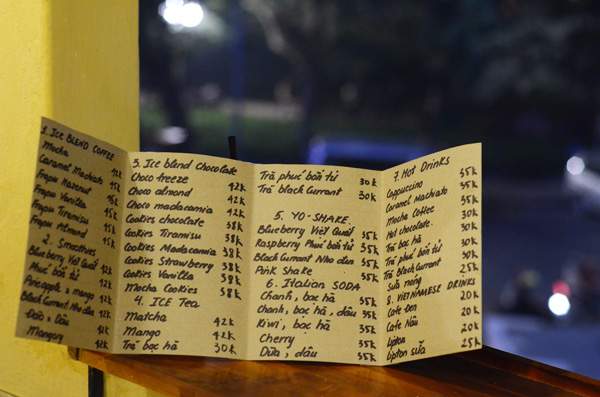 1. ICE BLEND COFFEE
Mocha 42k
Caramel Machiato 45k
Frapu Hazenut 45k
Frapu Vanilla 45k
Frapu Tiramisu 45k
Frapu Almond 45k
2. Smoothies
Blueberry Việt Quất 42k
Phúc bồn tử 42k
Pineapple & mango 42k
Black Currant Nho đen 42k
Dưa, Dâu 42k
Mangery 42k
3. Ice blend chocolate
Choco freeze 42k
Choco almond 42k
Choco macadamia 42k
Cookies chocolate 38k
Cookies Tiramisu 38k
Cookies Macadamia 38k
Cookies Strawberry 38k
Cookies Vanilla 38k
Mocha Cookies 38k
4. ICE Tea
Matcha 42k
Mango 42k
Trà bạc hà 30k
Trà phúc bồn tử 30k
Trà black Currant 30k
5. YO-SHAKE
Blueberry Việt Quất 35k
Raspberry Phúc bồn tử 35k
Black Currant Nho đen 35k
Pink Shake 35k
6. Italian SODA
Chanh, bạc hà 35k
Chanh, bạc hà, dâu 35k
Kiwi, bạc hà 35k
Cherry 35k
Dừa, dâu 35k
7. Hot DRINKS
Cappuccino 35k
Caramel Machiato 35k
Mocha Coffee 35k
Hot chocolate 30k
Trà bạc hà 30k
Trà phúc bồn tử 30k
Trà Black Currant 30k
Sữa nóng 25k
8. VIETNAMESE DRINKS
Cafe Đen 20k
Cafe Nâu 20k
Lipton 20k
Lipton sữa 25k